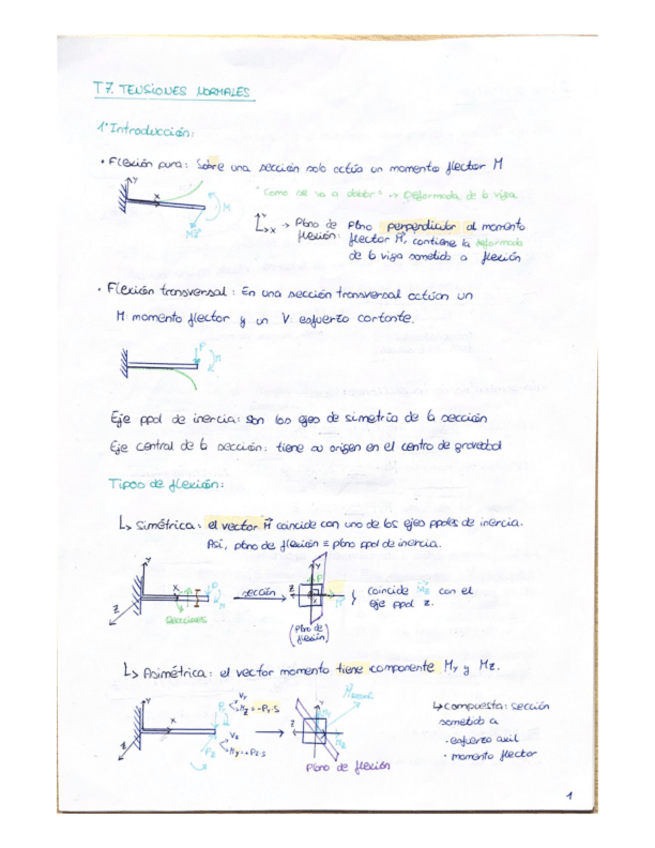 T7. TENSIONES NORMALES
1º Introducción:
• Flexión pura: Sobre una sección solo actúa un momento flector M
"Como se va a doblar" → Deformada de la viga
Y
X
M
Y
X → Plano de flexión: Plano perpendicular al momento
flector M, contiene la deformada
de la viga sometida a flexión
• Flexión transversal: En una sección transversal actúan un
M: momento flector y un V: esfuerzo cortante.
P
M
Eje ppal de inercia: son los ejes de simetría de la sección
Eje central de la sección: tiene su origen en el centro de gravedad
Tipos de flexión:
↳ Simétrica: el vector M coincide con uno de los ejes ppales de inercia.
Así, plano de flexión ≡ plano ppal de inercia.
Y
X
Z
Secciones
sección
Z
Y
(Plano de
flexión)
coincide con el
eje ppal z.
↳ Asimétrica: el vector momento tiene componente My y Mz.
Y
X
Z
Vy
Mz = -Py·S
Vz
My = +Pz·S
Z
Y
Plano de flexión
↳ Compuesta: sección
sometida a
· esfuerzo axil
· momento flector
1